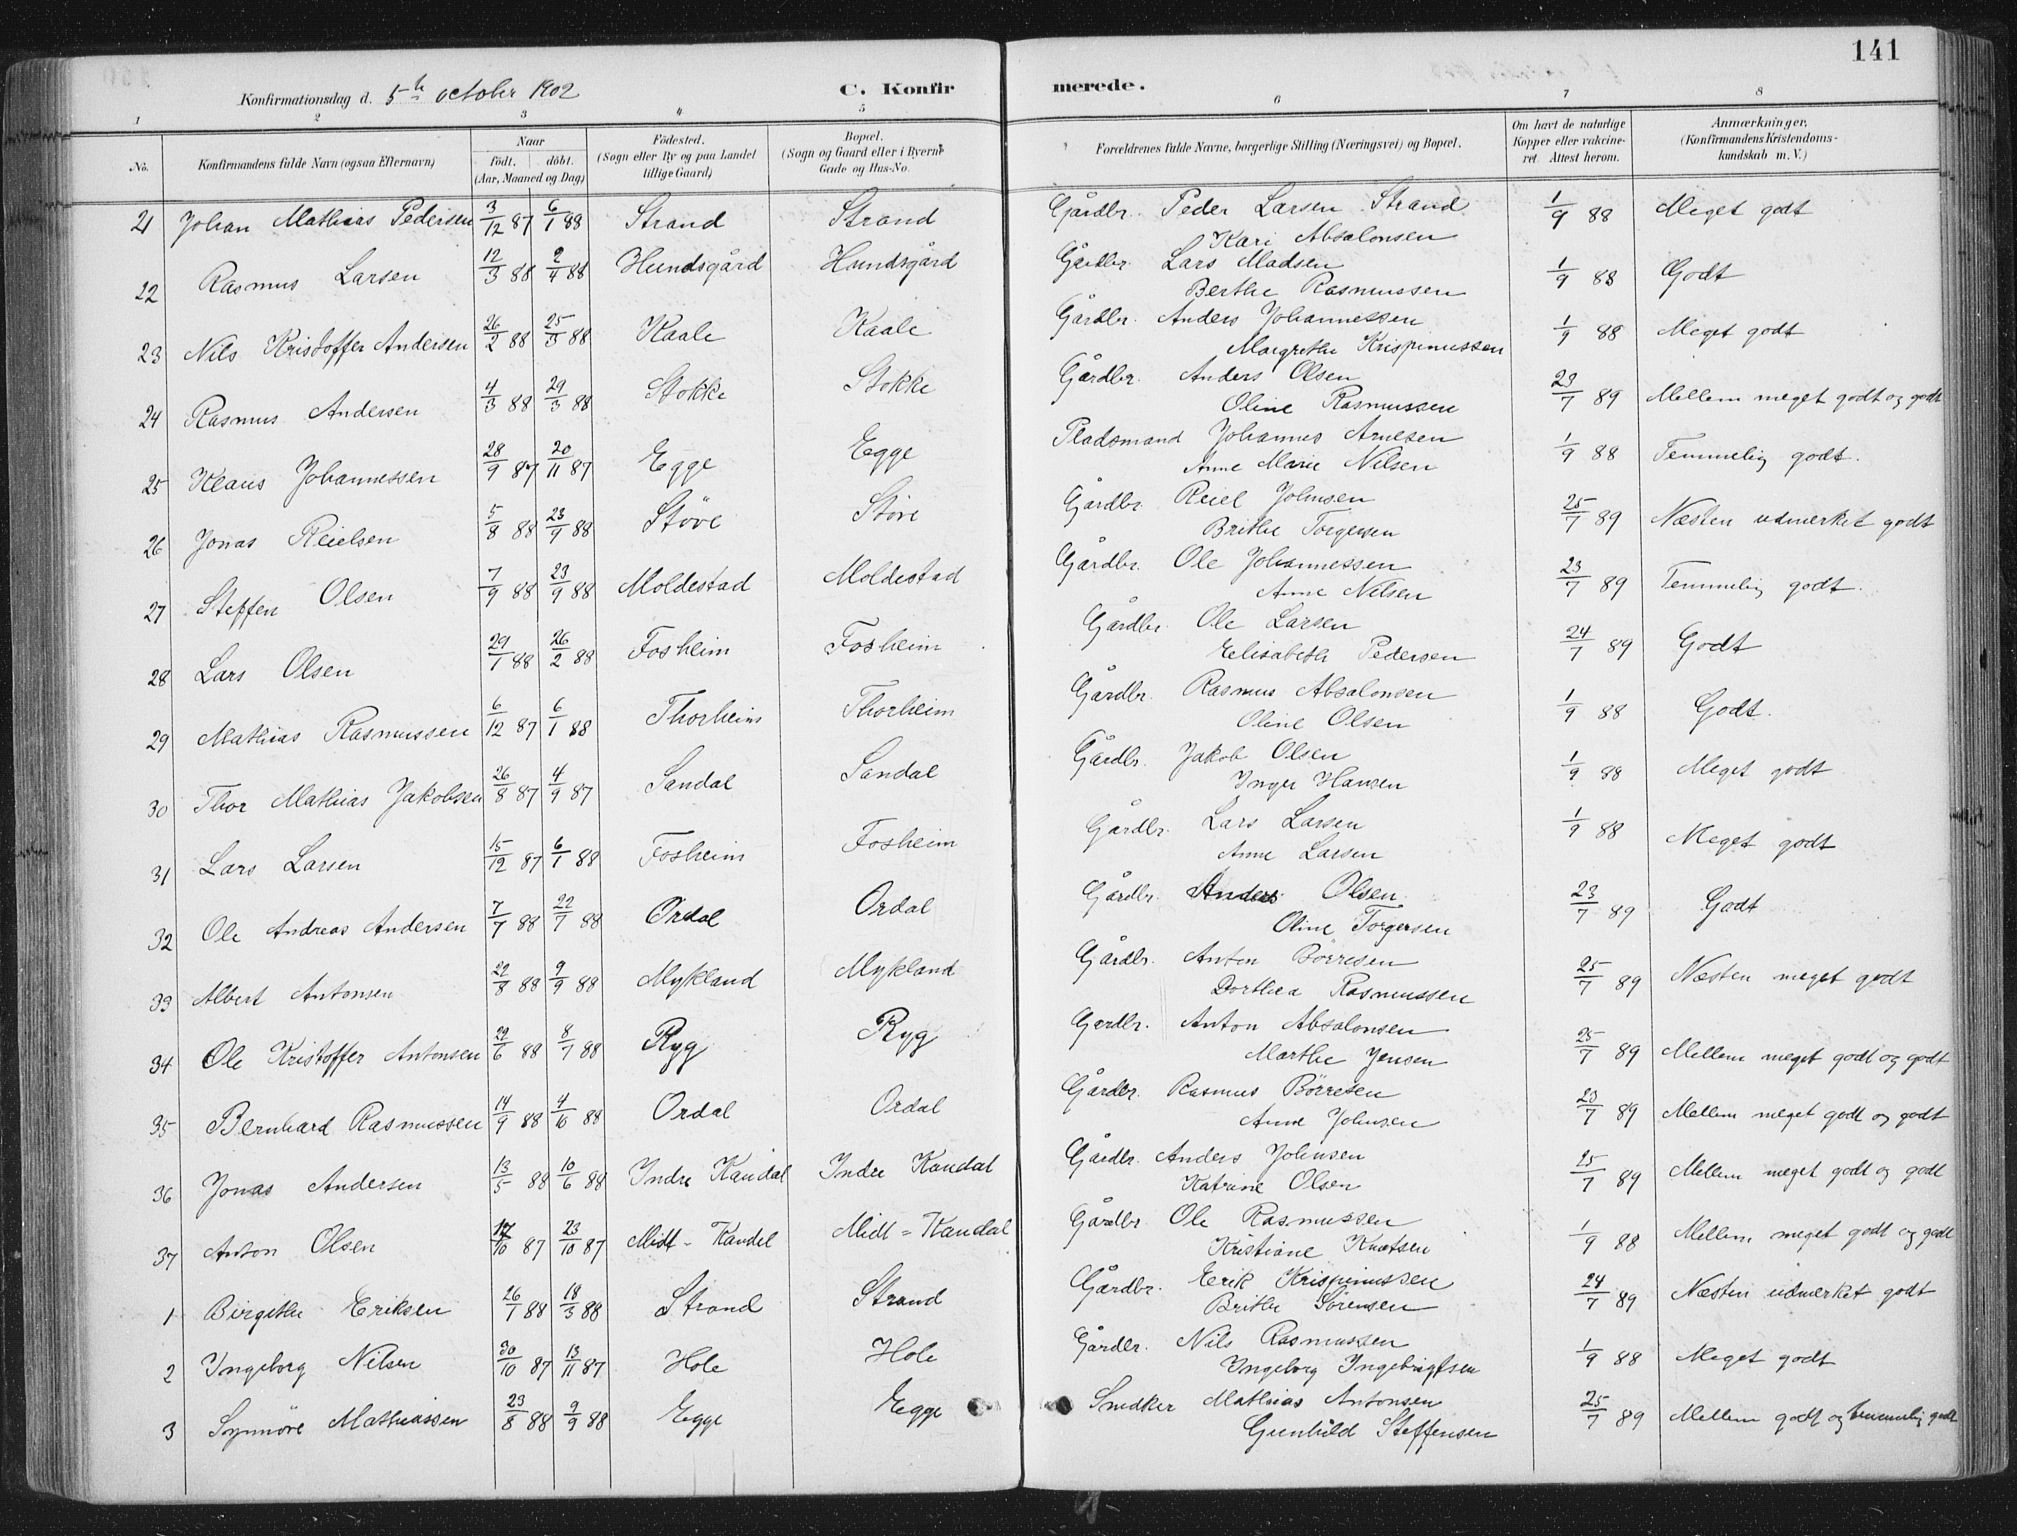 141
Konfirmationsdag d. 5te october 1902 C. Konfirmerede.
1 2 3 4 5 6 7 8
No. Konfirmandens fulde Navn (ogsaa Efternavn) Naar födt. döbt. (Aar, Maaned og Dag) Födested. (Sogn eller By og paa Landet tillige Gaard) Bopæl. (Sogn og Gaard eller i Byerne Gade og Hus-No. Forældrenes fulde Navne, borgerlige Stilling (Næringsvei) og Bopæl. Om havt de naturlige Kopper eller vakcineret. Attest herom. Anmærkninger. (Konfirmandens Kristendomskundskab m. V.)
21 Johan Mathias Pedersen 3/12 87 6/1 88 Strand Strand Gårdbr. Peder Larsen Strand 1/9 88 Meget godt
Kari Absalonsen
22 Rasmus Larsen 12/3 88 2/4 88 Hundsgård Hundsgård Gårdbr. Lars Madsen 1/9 88 Godt
Berthe Rasmussen
23 Nils Kristoffer Andersen 26/2 88 25/3 88 Kaale Kaale Gårdbr. Anders Johannessen 1/9 88 Meget godt
Margrethe Krispinussen
24 Rasmus Andersen 4/3 88 29/3 88 Stokke Stokke Gårdbr. Anders Olsen 23/7 89 Mellem meget godt og godt
Oline Rasmussen
25 Klaus Johannessen 28/9 87 20/11 87 Egge Egge Pladsmand Johannes Arnesen 1/9 88 Temmelig godt.
Anne Marie Nilsen
26 Jonas Reielsen 5/8 88 23/9 88 Støve Støve Gårdbr. Reiel Johnsen 25/7 89 Næsten udmerket godt
Brithe Torgersen
27 Steffen Olsen 7/9 88 23/9 88 Moldestad Moldestad Gårdbr. Ole Johannessen 23/7 89 Temmelig godt.
Anne Nilsen
28 Lars Olsen 29/1 88 26/2 88 Fosheim Fosheim Gårdbr. Ole Larsen 24/7 89 Godt
Elisabeth Pedersen
29 Mathias Rasmussen 6/12 87 6/1 88 Thorheim Thorheim Gårdbr. Rasmus Absalonsen 1/9 88 Godt.
Oline Olsen
30 Thor Mathias Jakobsen 26/8 87 4/9 87 Sandal Sandal Gårdbr. Jakob Olsen 1/9 88 Meget godt
Inger Hansen
31 Lars Larsen 15/12 87 6/1 88 Fosheim Fosheim Gårdbr. Lars Larsen 1/9 88 Meget godt
Anne Larsen
32 Ole Andreas Andersen 7/7 88 22/7 88 Ordal Ordal Gårdbr. Anders Olsen 23/7 89 Godt
Oline Torgersen
33 Albert Antonsen 22/8 88 9/9 88 Mykland Mykland Gårdbr. Anton Börresen 25/7 89 Næsten meget godt
Dorthea Rasmussen
34 Ole Kristoffer Antonsen 22/6 88 8/7 88 Ryg Ryg Gårdbr. Anton Absalonsen 25/7 89 Mellem meget godt og godt
Marthe Jensen
35 Bernhard Rasmussen 14/9 88 4/10 88 Ordal Ordal Gårdbr. Rasmus Börresen 23/7 89 Mellem meget godt og godt
Anne Johnsen
36 Jonas Andersen 13/5 88 10/6 88 Indre Kandal Indre Kandal Gårdbr. Anders Johnsen 25/7 89 Mellem meget godt og godt
Katrine Olsen
37 Anton Olsen /10 87 23/10 87 Midt-Kandal Midt=Kandal Gårdbr. Ole Rasmussen 1/9 88 Mellem meget godt og godt
Kristiane Knutsen
1 Birgithe Eriksen 26/1 88 18/3 88 Strand Strand Gårdbr. Erik Krispinussen 24/7 89 Næsten udmerket godt
Brithe Sörensen
2 Ingeborg Nilsen 30/10 87 13/11 87 Hole Hole Gårdbr. Nils Rasmussen 1/9 88 Meget godt
Ingeborg Ingebrigtsen
3 Synnöve Mathiassen 23/8 88 9/9 88 Egge Egge Snedker Mathias Antonsen 25/7 89 Mellem godt og temmelig godt
Gunhild Steffensen